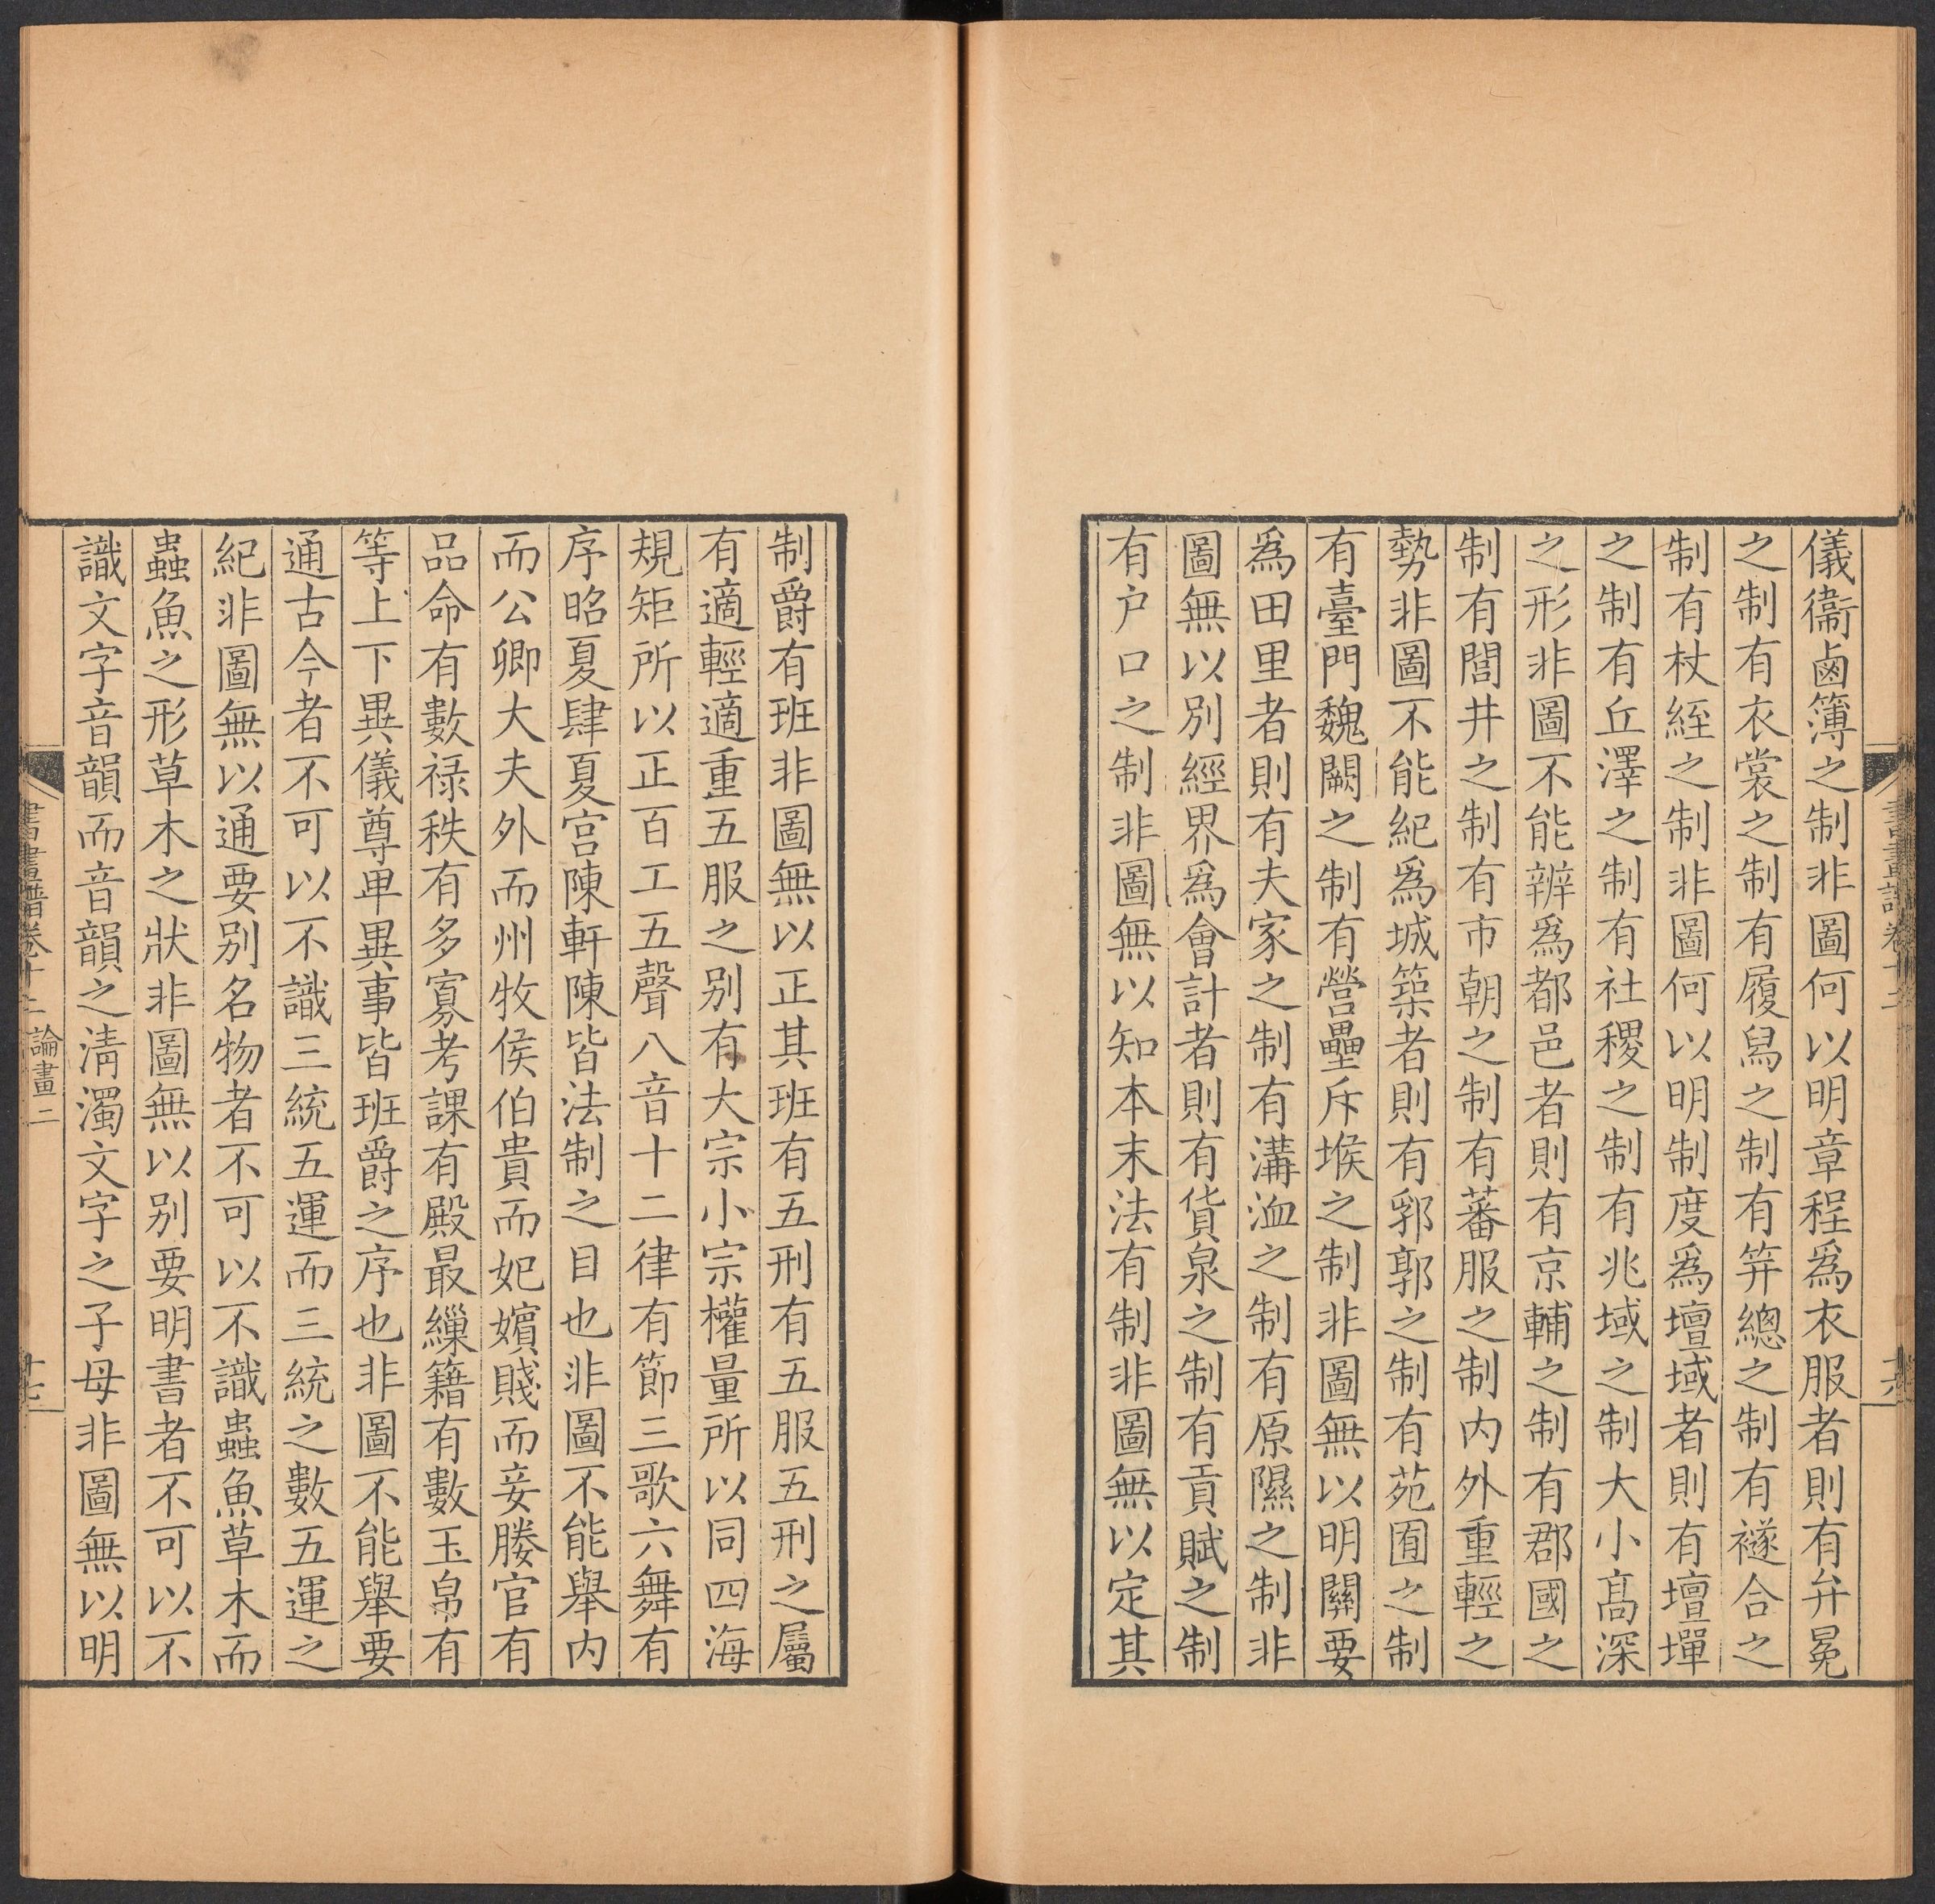 儀衞鹵簿之制非圖何以明章程爲衣服者則有弁冕
之制有衣裳之制有履舄之制有笄總之制有襚含之
制有杖絰之制非圖何以明制度爲壇域者則有壇墠
之制有丘澤之制有社稷之制有兆域之制大小高深
之形非圖不能辨爲都邑者則有京輔之制有郡國之
制有閭井之制有市朝之制有蕃服之制内外重輕之
勢非圖不能紀爲城築者則有郛郭之制有苑囿之制
有臺門魏闕之制有營壘斥堠之制非圖無以明關要
爲田里者則有夫家之制有溝洫之制有原隰之制非
圖無以別經界爲會計者則有貨泉之制有貢賦之制
有户口之制非圖無以知本末法有制非圖無以定其
制爵有班非圖無以正其班有五刑有五服五刑之屬
有適輕適重五服之别有大宗小宗權量所以同四海
規矩所以正百工五聲八音十二律有節三歌六舞有
序昭夏肆夏宫陳軒陳皆法制之目也非圖不能舉内
而公卿大夫外而州牧侯伯貴而妃嬪賤而妾媵官有
品命有數禄秩有多寡考課有殿最繅籍有數玉帛有
等上下異儀尊卑異事皆班爵之序也非圖不能舉要
通古今者不可以不識三統五運而三統之數五運之
紀非圖無以通要别名物者不可以不識蟲魚草木而
蟲魚之形草木之狀非圖無以别要明書者不可以不
識文字音韻而音韻之清濁文字之子母非圖無以明
書畫譜卷十二
論畫二
十七